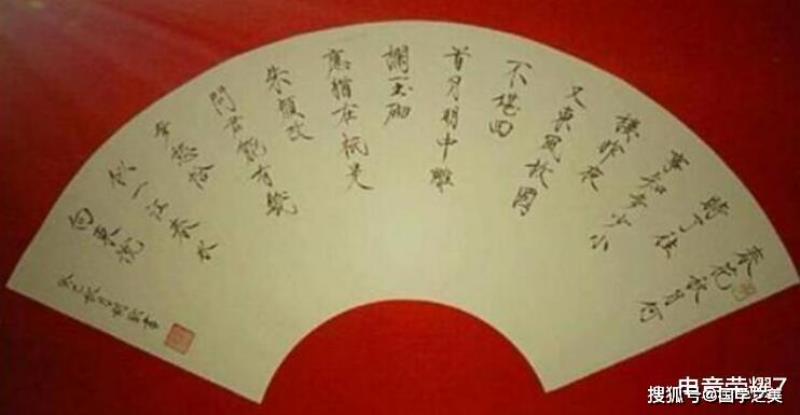 春花秋月何
時了往
事知多少小
樓昨夜
又東風故國
不堪回
首月明中雕
闌玉砌
應猶在祇是
朱顏改
問君能有幾
多愁恰
似一江春水
向東流
癸巳秋月書
荣耀7
搜狐号@国学之美